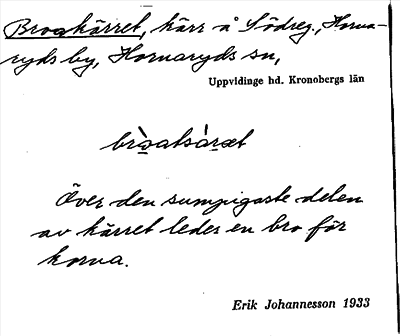 Brogkärret, kärr å Södreg., Horna-
ryds by, Hornaryds sn,
Uppvidinge hd. Kronobergs län
Över den sumpigaste delen
av kärret leder en bro för
korna.
Erik Johannesson 1933